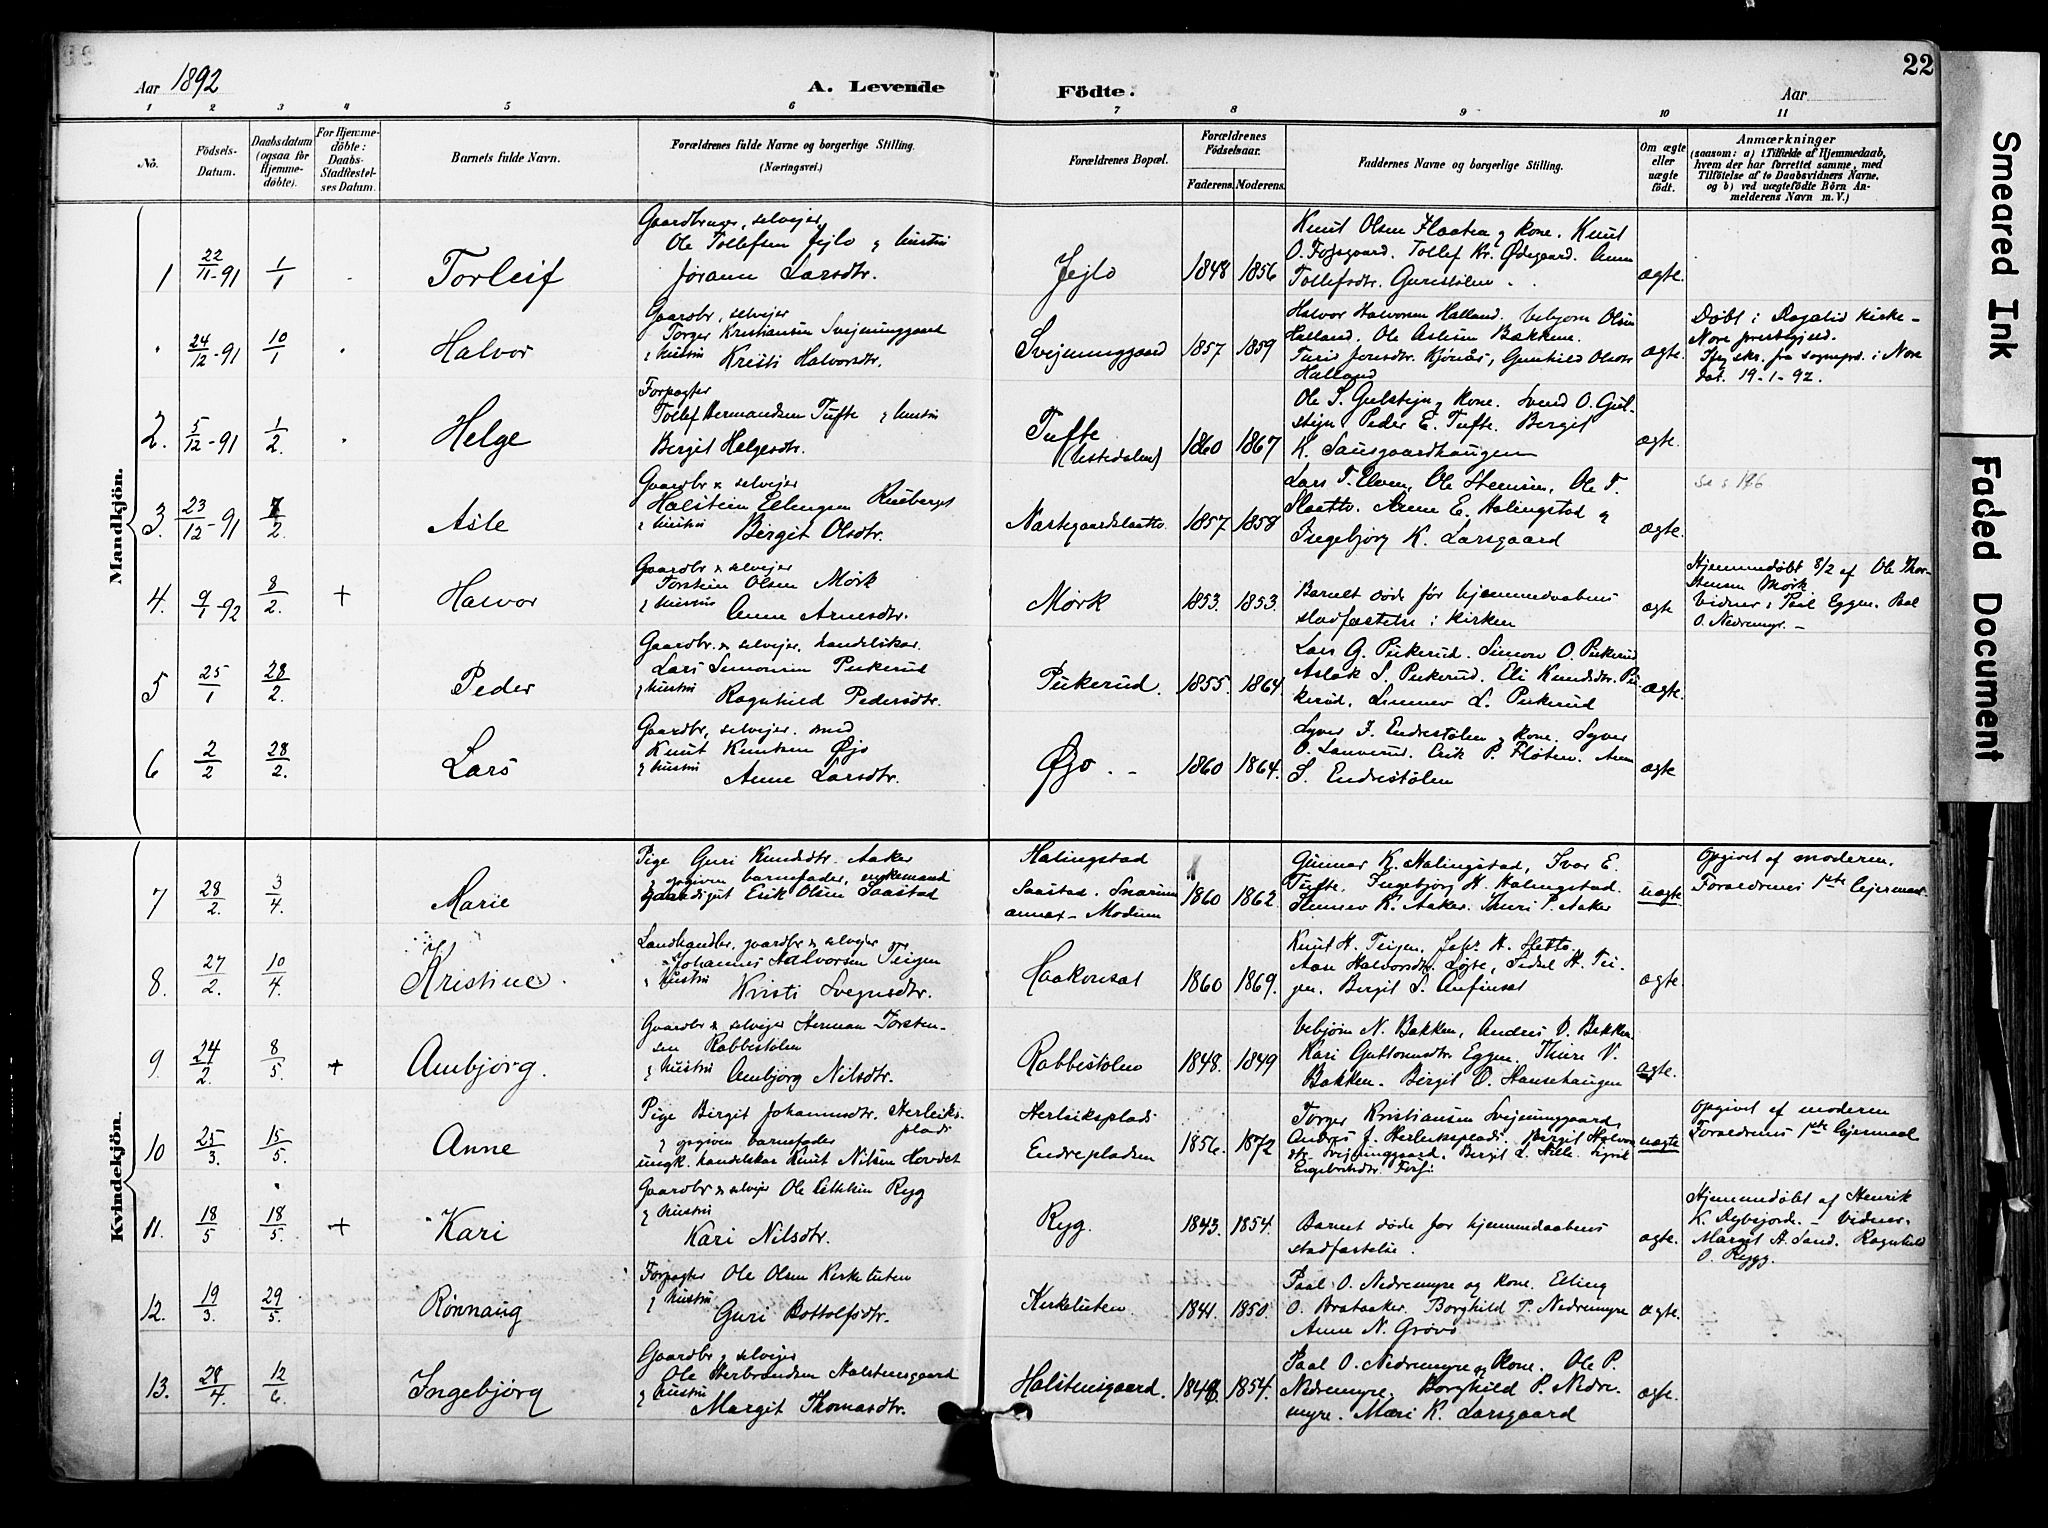 22
Aar 1892
A. Levende Födte.
Aar
1 2 3 4 5 6 7 8 9 10 11
No.
Födsels-Datum.
Daabsdatum (ogsaa for Hjemme-döbte).
For Hjemme-döbte: Daabs-Stadfæstel-ses Datum.
Barnets fulde Navn.
Forældrenes fulde Navne og borgerlige Stilling.
(Næringsvei.)
Forældrenes Bopæl.
Forældrenes Födselsaar.
Faderens. Moderens.
Faddernes Navne og borgerlige Stilling.
Om ægte eller uægte födt.
Anmærkninger
(saasom: a) i Tilfælde af Hjemmedaab,
hvem der har forrettet samme, med
Tilföielse af to Daabsvidners Navne.
og b) ved uægtefödte Börn An-
melderens Navn m. V.)
Mandkjön.
1 22/11-91 1/1 Torleif
Gaardbruger, selvejer
Ole Tollefsen Jejlo & hustru
Jorann Larsdtr.
Jejlo 1848 1856
Knut Olsen Flaaten & kone. Knut
O. Fossgaard. Tollef Kr. Ødegaard. Anne
Tollefsdtr. Guristølen
ægte.
24/12-91 10/1 Halvor
Gaardbr, selvejer
Torger Kristiansen Svejnunggaard
& hustru Kristi Halvorsdtr.
Svejnunggaard 1857 1859
Halvor Halvorsen Halland. Vebjørn Olsen
Halland. Ole Aslesen Bakken.
Turid Jonsdtr. Kjønås, Gunhild Olsdtr
Halland
ægte.
Døbt i Rogalid kirke -
Nore prestegjeld.
skr. fra sogneprd. i Nore
dat. 19-1-92.
2. 5/12-91 1/2 Helge
Forpagter
Tollef Hermandsen Tufte & hustru
Birgit Helgesdtr.
Tufte
(Ustedalen) 1860 1867
Ole S. Gulstejn & kone. Svend O. Gul-
stejn Peder E. Tufte. Bergit
K. Sausgaardhaugen
ægte.
3. 23/12-91 7/2 Asle
Gaardbr & selvejer
Halstein Ellingsen Rueberget
& hustru Birgit Olsdtr.
Nordegaardslaatto. 1857 1858
Lars T. Elven, Ole Steinsen, Ole T.
Slaatto. Anne E. Halingstad &
Ingebjørg K. Larsgaard
ægte.
se s 176
4. 9/1-92 8/2. + Halvor
Gaardbr & selvejer
Torstein Olsen Mørk
& hustru Anne Arnesdtr.
Mørk 1853. 1853.
Barnet døde før hjemmedaabens
stadfæstelse i kirken
ægte
Hjemmedøbt 8/2 af Ole Thor-
stensen Mørk
Vidner: Paal Eggen. Paal
O. Nedremyr. -
5 25/1 28/2 Peder
Gaardbr. & selvejer, handelskar.
Lars Simonsen Pukerud
& hustru Ragnhild Pedersdtr.
Pukerud. 1855. 1864.
Lars G. Pukerud. Simon O. Pukerud
Aslak S. Pukerud. Eli Knudsdtr. Pu-
kerud. L. Pukerud
ægte.
6 2/2 28/2. Lars
Gaardbr, selvejer. smed
Knut Knutsen Øjo
& hustru Anne Larsdtr.
Øjo. - 1860 1864.
Syver J. Endrestølen & kone. Syver
O. Sanverud. Erik P. Fløten. Anne
S. Endrestølen
ægte
Kvindekjön.
7 28/2. 3/4. Marie
Pige Guri Knudsdtr. Aaker
& opgiven barnefader, enkemand
gaardsgut Erik Olsen Saastad
Halingstad
Saastad. Snarum
annex - Modum 1860 1862.
Gunnar K. Halingstad, Ivar E.
Tufte. Ingebjørg H. Halingstad.
K. Aaker. Thuri P. Aaker
uægte
Opgivet af moderen.
Forældrenes 1ste lejermaal
8. 27/2. 10/4. Kristine.
Landhandler, gaardbr & selvejer
Johannes Halvorsen Teigen
& hustru Kristi Svejnsdtr.
Haakonsæt 1860 1869.
Knut H. Teigen, Joh. H. Sletto
Aase Halvorsdtr. Løgte, Sidsel H. Tei-
gen. Birgit S. Anfinsæt
ægte.
9 24/2. 8/5. + Ambjørg.
Gaardbr & selvejer Herman Torsten-
sen Rabbestølen
& hustru Ambjørg Nilsdtr.
Rabbestølen 1848. 1849
Vebjørn N. Bakken, Andres O. Bakken
Kari Guttormsdtr. Eggen. Thore V.
Bakken. Birgit O. Hansehaugen
ægte.
10 25/3. 15/5. Anne
Pige Birgit Johannesdtr. Herleiks-
plads
& opgiven barnefader
ungk. handelskar Knut Nilsen Hovdet
Herleiksplads
Endrepladsen 1856. 1872
Torger Kristiansen Svejnunggaard,
Andres J. Herleiksplads. Birgit Halvors
dtr. Svejnunggaard. Bergit L. Sigrid
Engebretsdtr.
uægte
Opgivet af moderen
Forældrenes 1ste lejermaal
11. 18/5 18/5. + Kari
Gaardbr & selvejer Ole Ryg
& hustru
Kari Nilsdtr.
Ryg. 1843. 1854.
Barnet døde før hjemmedaabens
stadfæstelse.
ægte.
Hjemmedøbt af Henrik
K. Dybsjorde. - Vidner.
Margit A. Sand. Ragnhild
O. Rygg.
12. 19/3. 29/5. Rønnaug
Forpagter Ole Olsen Kirkeluten
& hustru
Guri Bottolfsdtr.
Kirkeluten 1841. 1850.
Paal O. Nedremyre og kone. Elling
O. Brataaker. Borghild P. Nedremyre
Anne N. Grøvo
ægte.
13. 28/4. 12/6. Ingebjørg
Gaardbr & selvejer
Ole Herbrandsen Halstensgaard
& hustru
Margit Thomasdtr.
Halstensgaard. 1848. 1854.
Paal O. Nedremyre & kone. Ole P.
Nedremyre. Borghild P. Nedre-
myre. Mari K. Larsgaard
ægte.
Smeared Ink
Faded Document